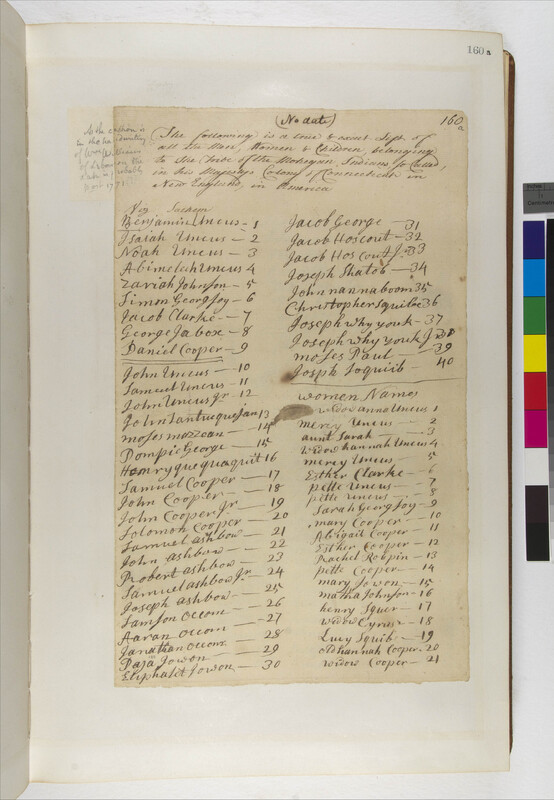 160a
(No date)
160
a
The following is a true & exact List of
all the Men, Women & Children belonging
to the Tribe of the Mohegan Indians, so Called,
in his Majestys Colony of Connecticut in
New England, in America
Viz Sachem
Benjamin Uncus - 1
Isaiah Uncus - 2
Noah Uncus - 3
Abimelech Uncus 4
Zariah Johnson - 5
Simon Georg Joy - 6
Jacob Clarke - 7
George Jabose - 8
Daniel Cooper - 9
John Uncus - 10
Samuel Uncus - 11
John Uncus Jr - 12
John Tantuquejan 13
moses mazzean - 14
Pompie George - 15
Henry quequaquitt 16
Samuel Cooper - 17
John Cooper - 18
John Cooper Jr - 19
Solomon Cooper - 20
Samuel ashbow - 21
John ashbow - 22
Robert ashbow - 23
Samuel ashbow Jr - 24
Joseph ashbow - 25
Samson occom - 26
Aaran occom - 27
Janathan occom - 28
Jowon - 29
Eliphalet Jowon - 30
Jacob George - 31
Jacob Hoscout - 32
Jacob Hoscout Jr 33
Joseph Shatob - 34
John nannaboom 35
Christopher Squibe 36
Joseph why youk - 37
Joseph why youk Jr 38
moses Paul 39
Josph Soquib - 40
women Names
widow anna Uncus 1
mercy Uncus - 2
aunt Sarah - 3
widow hannah Uncus 4
mercy Uncus - 5
Esther Clarke - 6
pette Uncus - 7
pette Uncus - 8
Sarah Georg Joy - 9
mary Cooper - 10
Abigail Cooper - 11
Esther Cooper - 12
Rachel Robpin - 13
pette Cooper - 14
mary Jowon - 15
matha Johnson - 16
henry Squer - 17
widow Cyrus - 18
Lucy Squib - 19
old hannah Cooper - 20
widow Cooper - 21